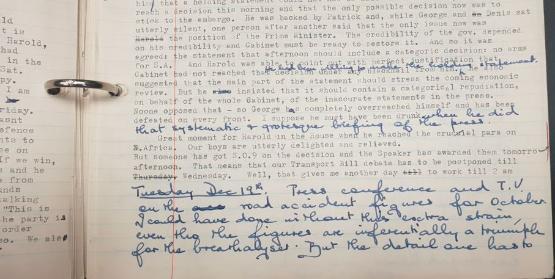 him that a holding statement could not
reach a decision this morning and that the only possible decision now was to
stick to the embargo. He was backed by Patrick and, while George and Denis sat
utterly silent, one person after another said that the only issue now was
the position of the Prime Minister. The credibility of the gov. depended
on his credibility and Cabinet must be ready to restore it. And so it was
agreed: the statement that afternoon should include a categorical decision: no arms
for S.A. Harold was able to point with perfect justification that
Cabinet had not reached that decision under any
suggested that the main part of the statement should stress the coming economic
review. But he insisted that it should contain a categorical repudiation,
on behalf of the whole Cabinet, of the inaccurate statements in the press.
Noone opposed that - so George has completely overreached himself and has been
defeated on every front. I suppose he must have been drunk when he did
that systematic & grotesque briefing of the press.
Great moment for Harold in the House when he reached the crucial para on
S.Africa. Our boys are utterly delighted and relieved.
But someone has got S.O.9 on the decision and the Speaker has awarded them tomorrow
afternoon. That means that our Transport Bill debate has to be postponed till
Thursday. Wednesday. Well, that gives me another day to work till 2 am
Tuesday Dec 19th. Press conference and T.V.
on the road accident figures for October.
I could have done without this extra strain,
even tho the figures are inferentially a triumph
for the breathalyser. But the detail one has to
is
Harold,
had
in the
sat.
py.
I am
riday.
defence
nts to
e on
If we win,
and he
s from
ands
alking
"This is
he party is
order
so. We